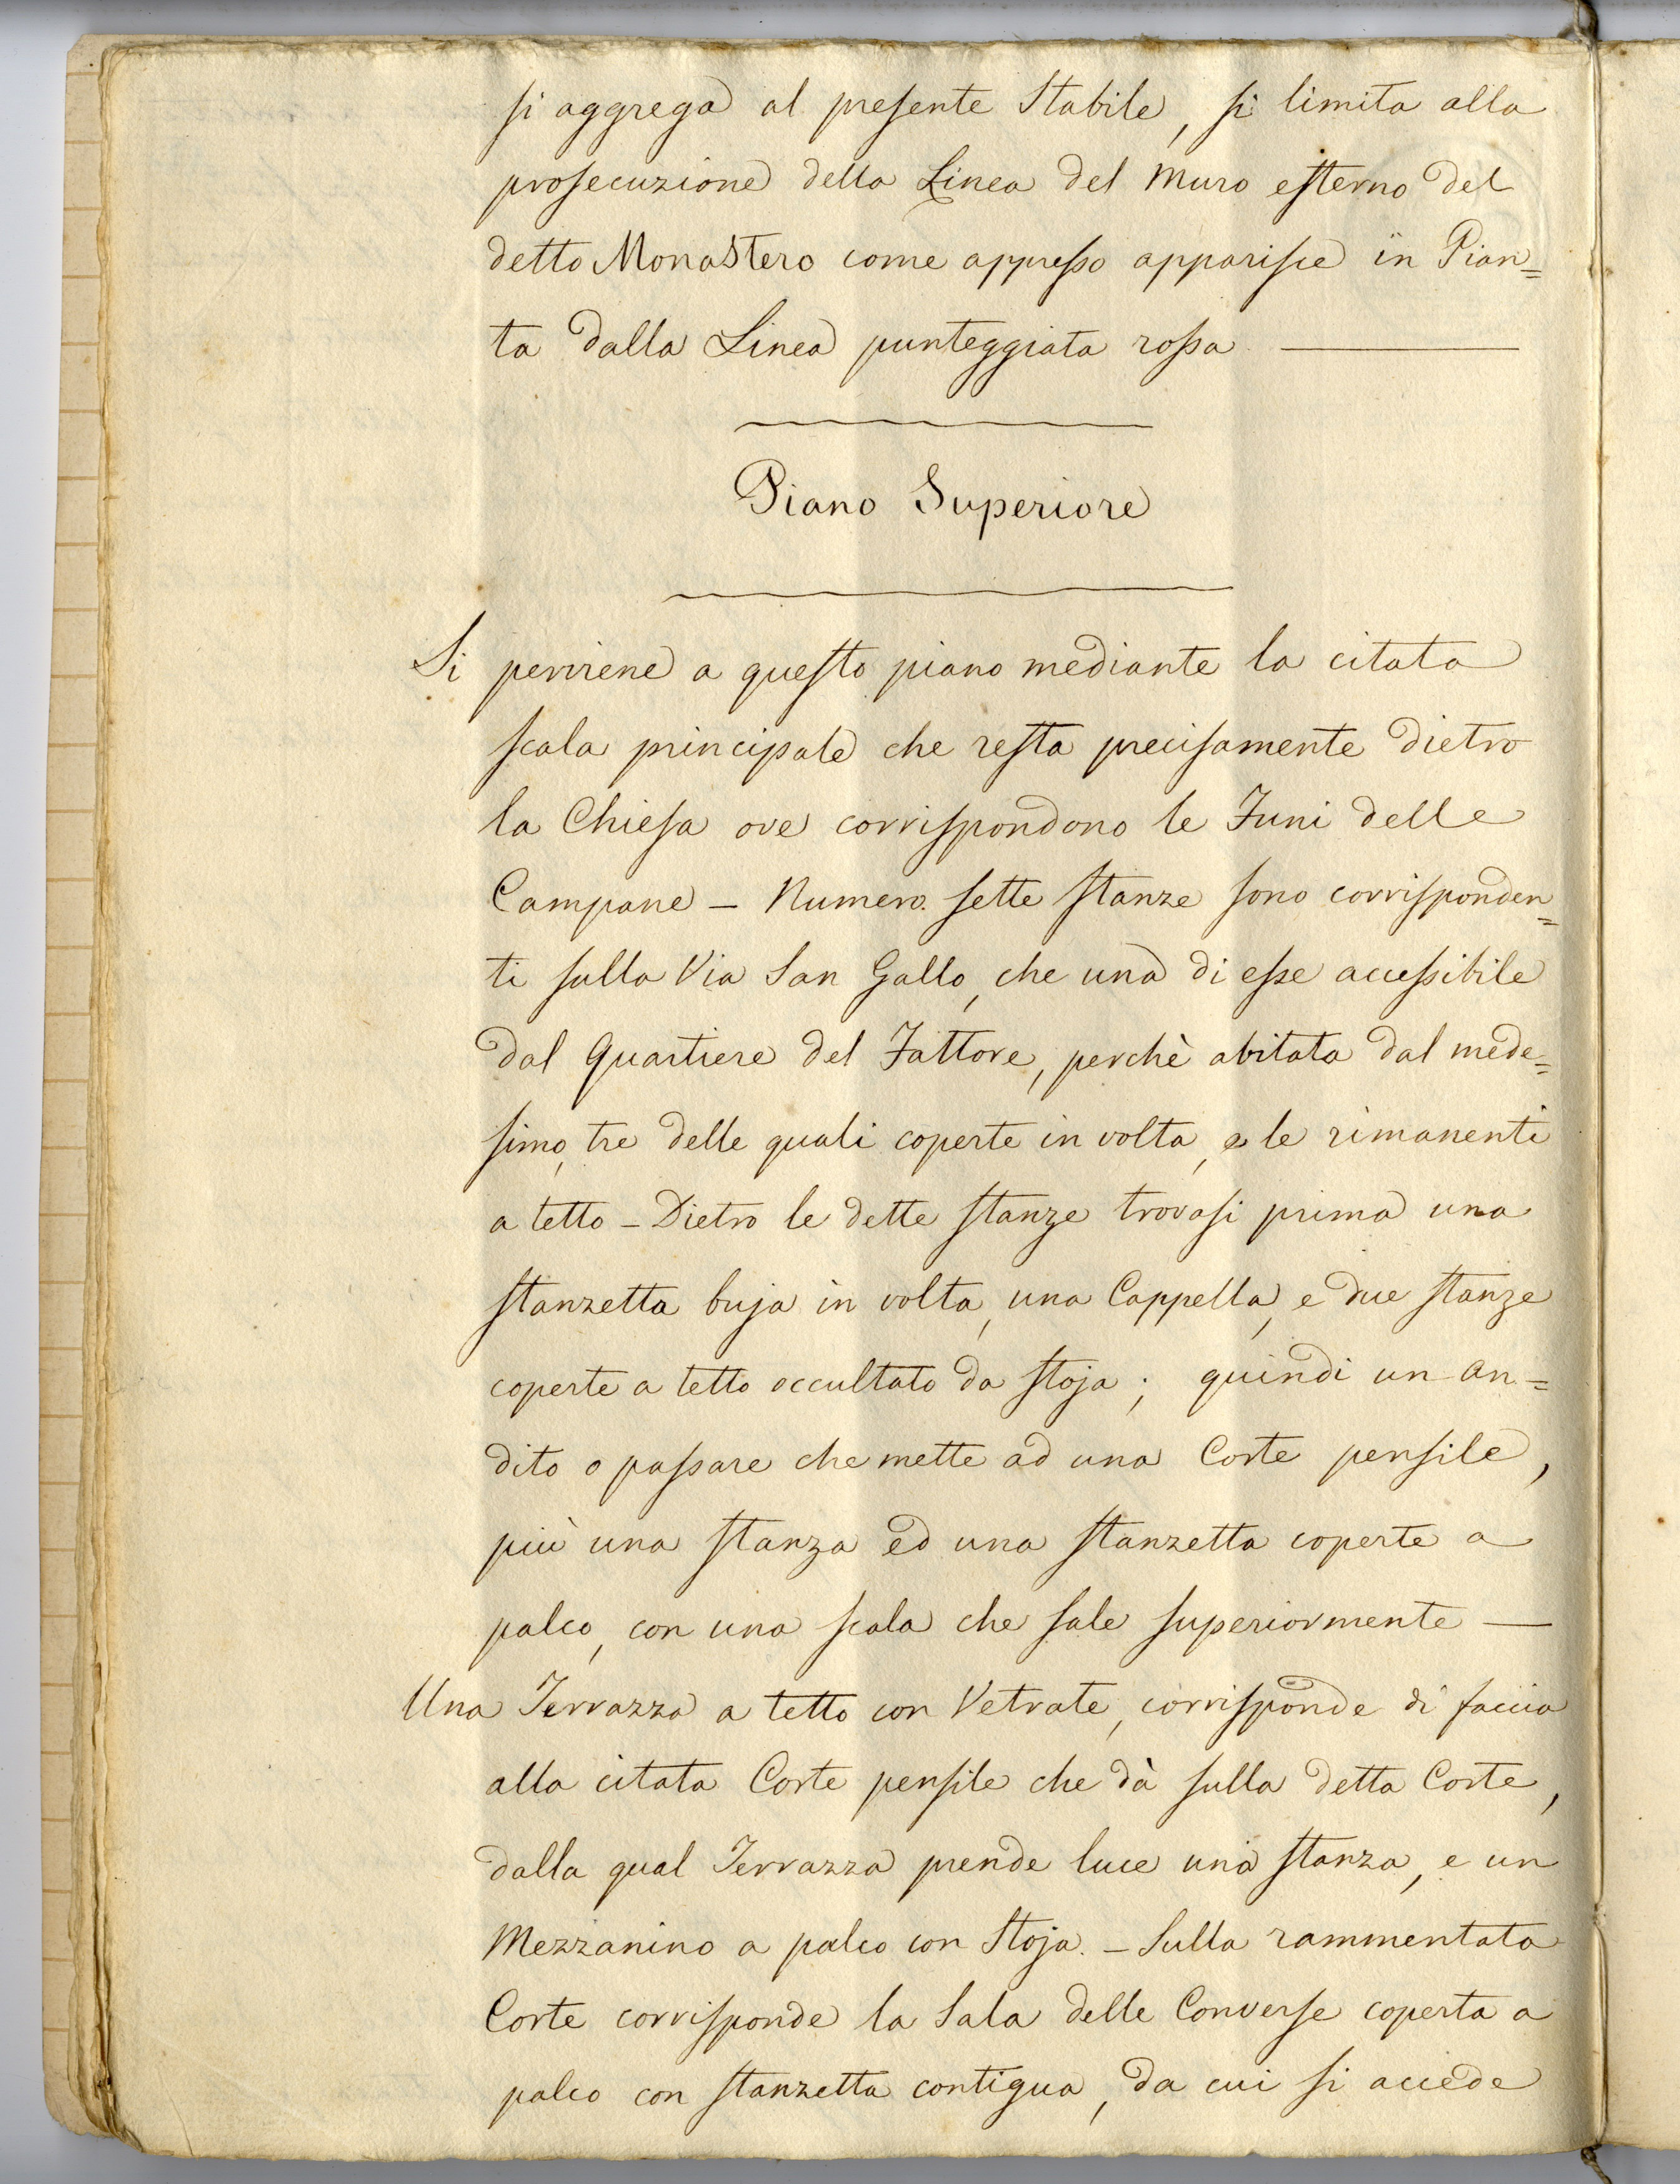 si aggrega al presente Stabile, si limita alla
prosecuzione della Linea del Muro esterno del
detto Monastero come appresso apparisce in Pian=
ta dalla Linea punteggiata rossa ———
Piano Superiore
Si perviene a questo piano mediante la citata
scala principale che resta precisamente dietro
la Chiesa ove corrispondono le Funi delle
Campane – Numero sette stanze sono corrisponden=
ti sulla Via San Gallo, che una di esse accessibile
dal Quartiere del Fattore, perchè abitata dal mede=
simo, tre delle quali coperte in volta, e le rimanenti
a tetto – Dietro le dette stanze trovasi prima una
stanzetta buja in volta, una Cappella, e due stanze
coperte a tetto occultato da stoja; quindi un an=
dito o passare che mette ad una Corte pensile,
più una stanza ed una stanzetta coperte a
palco, con una scala che sale superiormente —
Una Terrazza a tetto con Vetrate, corrisponde di faccia
alla citata Corte pensile che dà sulla detta Corte,
dalla qual Terrazza prende luce una stanza, e un
Mezzanino a palco con Stoja. – Sulla rammentata
Corte corrisponde la Sala delle Converse coperta a
palco con stanzetta contigua, da cui si accede